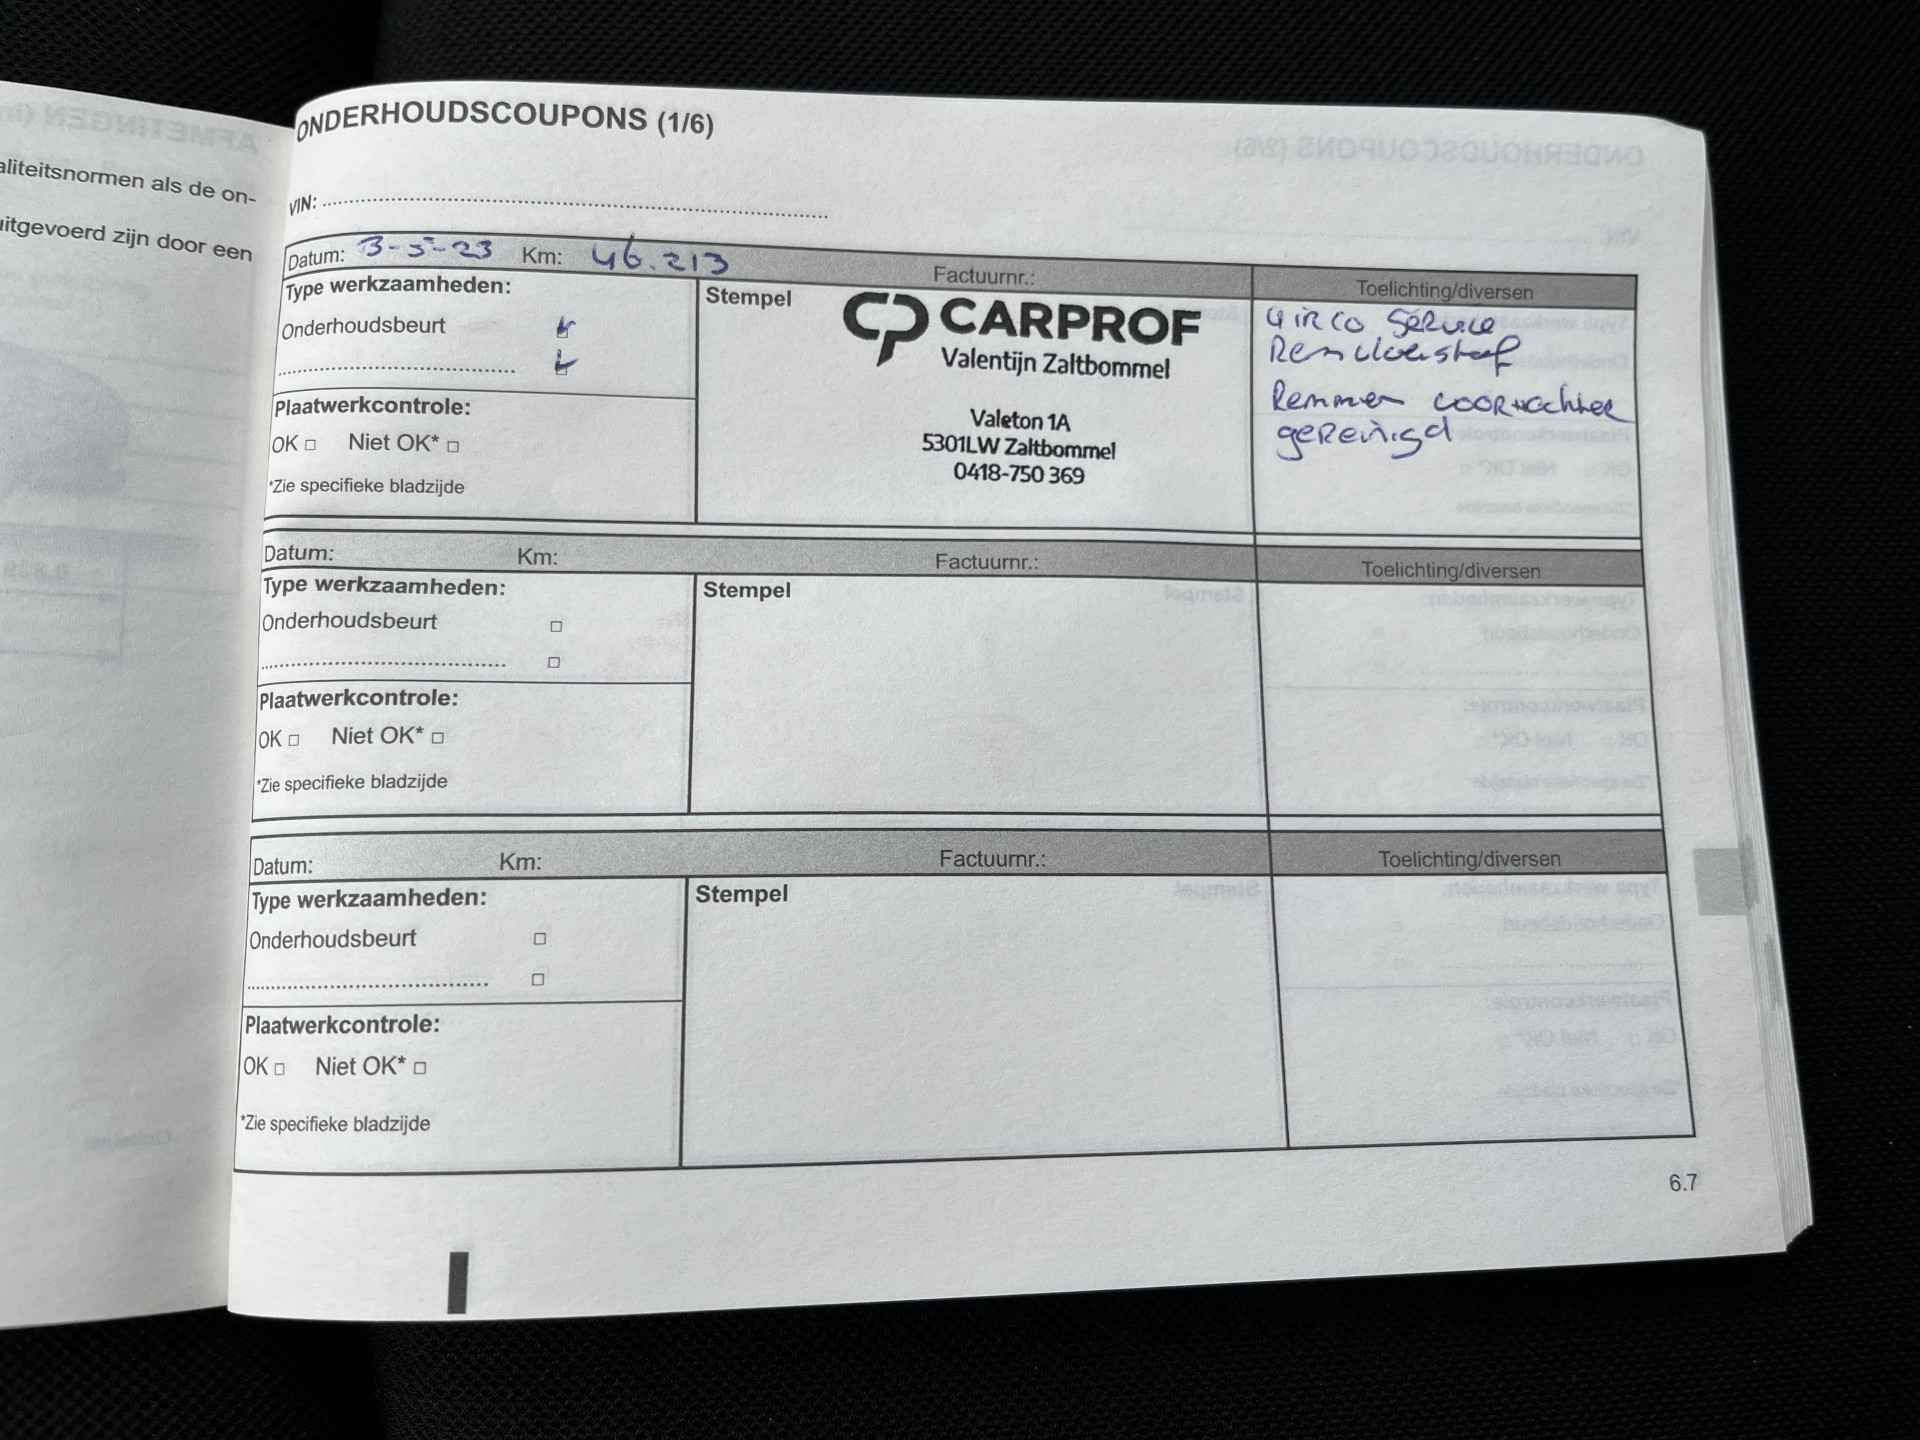 aliteitsnormen als de on-
uitgevoerd zijn door een
ONDERHOUDSCOUPONS (1/6)
VIN:
Datum: 3-5-23 Km: 46.213 Factuurnr.: Toelichting/diversen
Type werkzaamheden:
Onderhoudsbeurt
Plaatwerkcontrole:
OK □ Niet OK* □
*Zie specifieke bladzijde
Stempel
CP CARPROF
Valentijn Zaltbommel
Valeton 1A
5301LW Zaltbommel
0418-750 369
Airco Service
Remvloeistof
Remmen voor+achter
gereinigd
Datum: Km: Factuurnr.: Toelichting/diversen
Type werkzaamheden:
Onderhoudsbeurt □
□
Plaatwerkcontrole:
OK □ Niet OK* □
*Zie specifieke bladzijde
Stempel
Datum: Km: Factuurnr.: Toelichting/diversen
Type werkzaamheden:
Onderhoudsbeurt □
□
Plaatwerkcontrole:
OK □ Niet OK* □
*Zie specifieke bladzijde
Stempel
6.7